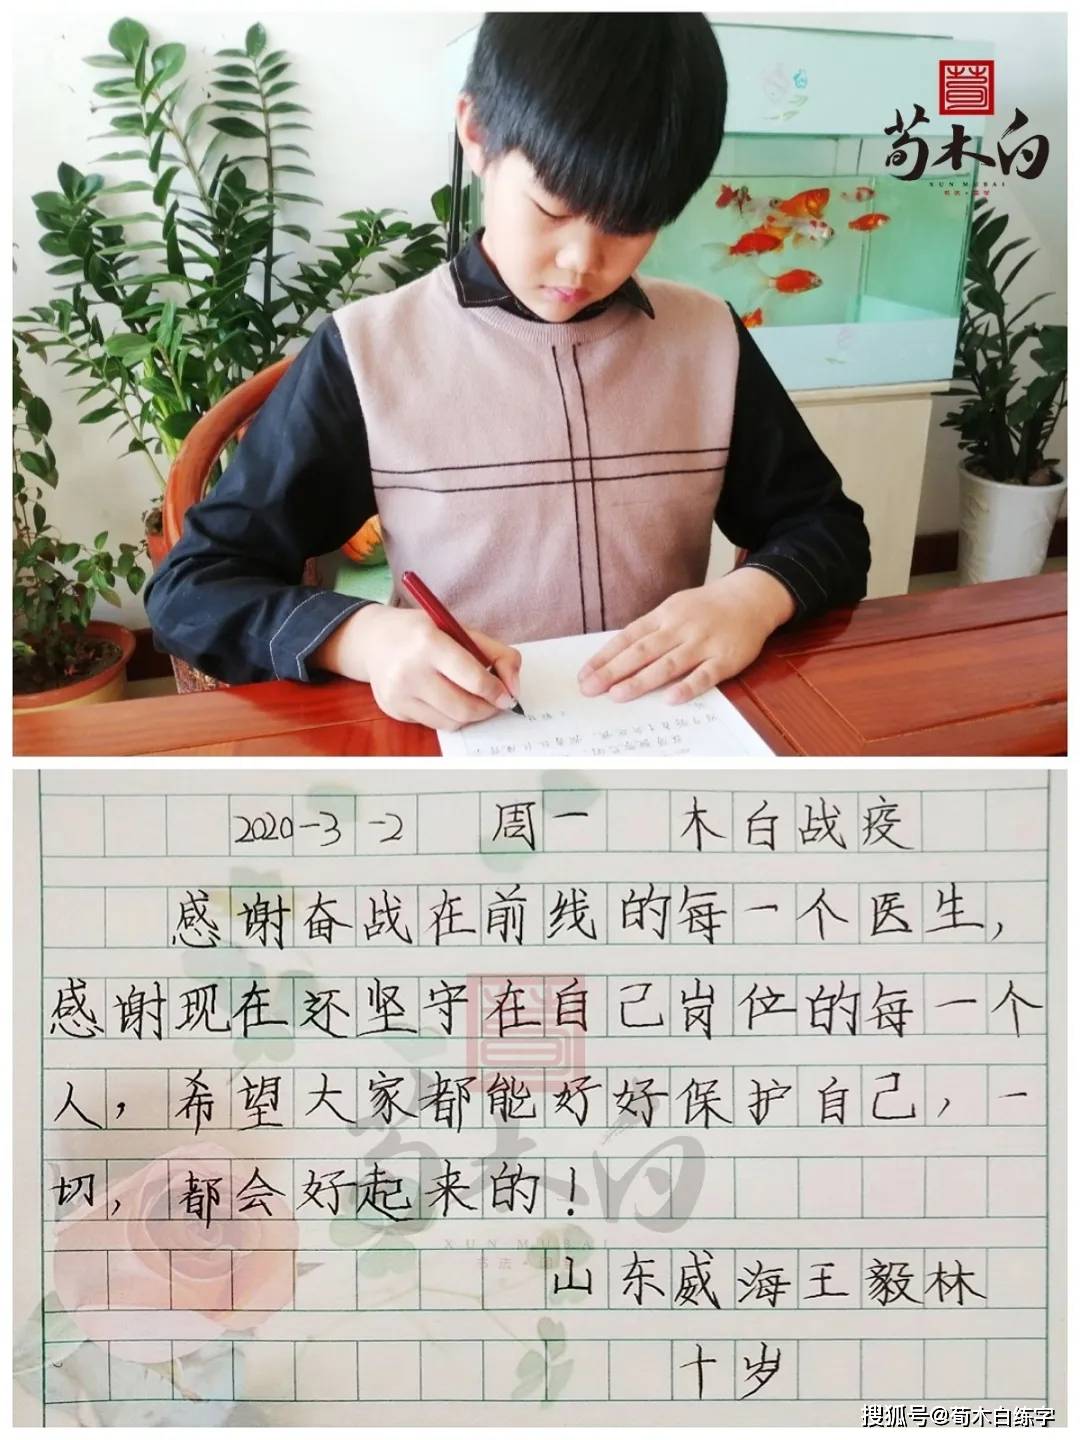 荀木白
XUN MUBAI
2020-3-2 周一 木白战疫
感谢奋战在前线的每一个医生，
感谢现在还坚守在自己岗位的每一个
人，希望大家都能好好保护自己，一
切，都会好起来的！
荀木白
XUN MUBAI
山东威海王毅林
十岁
搜狐号@荀木白练字